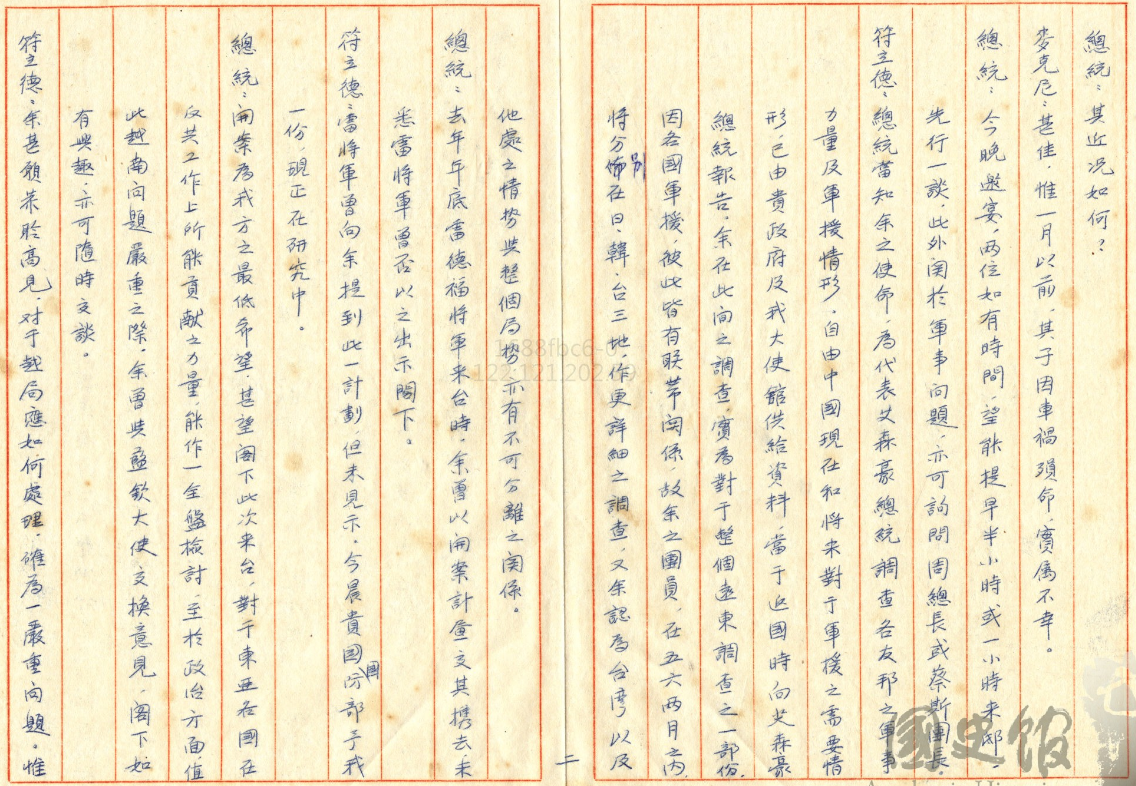 總統：其近况如何？
麥克尼：甚佳，惟一月以前，其子因車禍殞命，實屬不幸。
總統：今晚邀宴，兩位如有時間，望能提早半小時或一小時來邸，
先行一談，此外関於軍事问題，亦可詢問周總長或蔡斯團長。
符立德：總統當知余之使命，為代表艾森豪總統調查各友邦之軍事
力量及軍援情形，自由中國現在和将来對于軍援之需要情
形，已由貴政府及我大使館供给資料，當于返國時向艾森豪
總統報告，余在此间之調查，實為對于整個遠東調查之一部份，
因各國軍援，彼此皆有联帶関係，故余之團員，在五六两月之内，
将分別在日、韓、台三地，作更詳細之調查，又余認為台湾以及
二
他處之情势與整個局势，亦有不可分離之関係。
總統：去年年底雷德福将軍来台時，余曾以開案計畫交其携去，未
悉雷将軍曾否以之出示閣下。
符立德：雷将軍曾向余提到此一計劃，但未見示。今晨貴國國防部予我
一份，現正在研究中。
總統：開案為我方之最低希望，甚望閣下此次来台，對于東亞各國在
反共工作上所能貢献之力量，能作一全盤檢討，至於政治方面值
此越南问題嚴重之際，余曾與藍欽大使交換意見，閣下如
有興趣，亦可隨時交談。
符立德：余甚願恭聆高見，对于越局應如何處理，確為一嚴重问題。惟
國史館